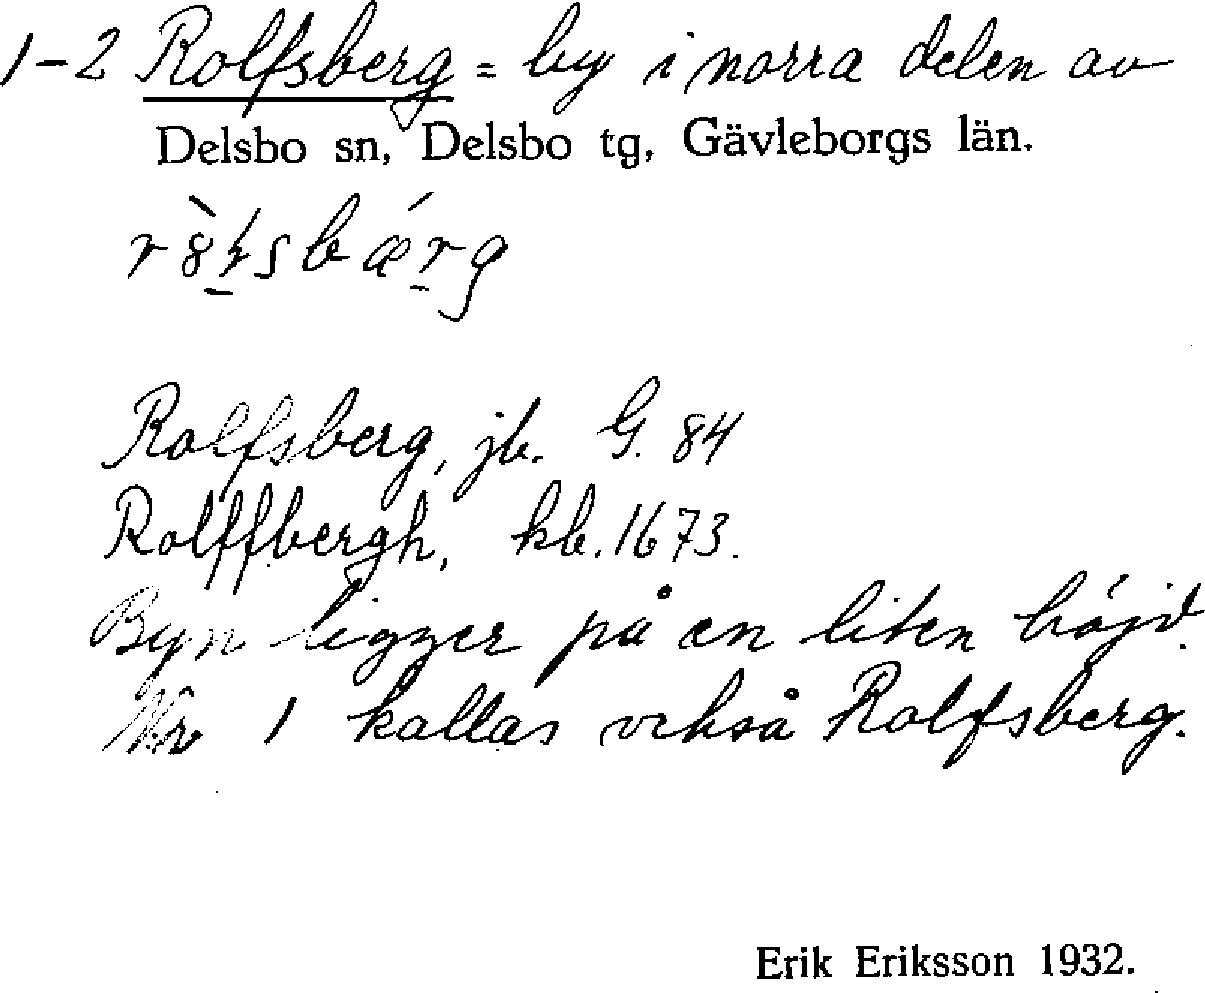 1-2 Rolfsberg = by i norra delen av
Delsbo sn, Delsbo tg, Gävleborgs län.
Rolfsberg, jb. G. 84
Rolffbergh, kb. 1673.
Byn ligger på en liten höjd.
Nr 1 kallas också Rolfsberg.
Erik Eriksson 1932.